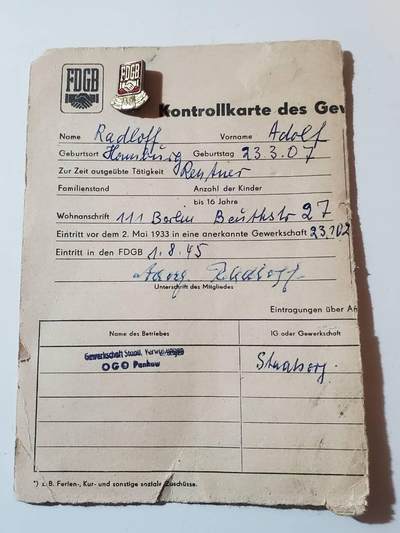 FDGB
FDGB
Kontrollkarte des Gew
Name Radloff Vorname Adolf
Geburtsort Homburg Geburtstag 23.3.07
Zur Zeit ausgeübte Tätigkeit Rentner
Familienstand Anzahl der Kinder
bis 16 Jahre
Wohnanschrift 111 Berlin Beuthstr 27
Eintritt vor dem 2. Mai 1933 in eine anerkannte Gewerkschaft
Eintritt in den FDGB 1.8.45
Unterschrift des Mitgliedes
Eintragungen über
Name des Betriebes IG oder Gewerkschaft
Gewerkschaft Staatl.
OGO Pankow
*) z. B. Ferien-, Kur- und sonstige soziale Zuschüsse.